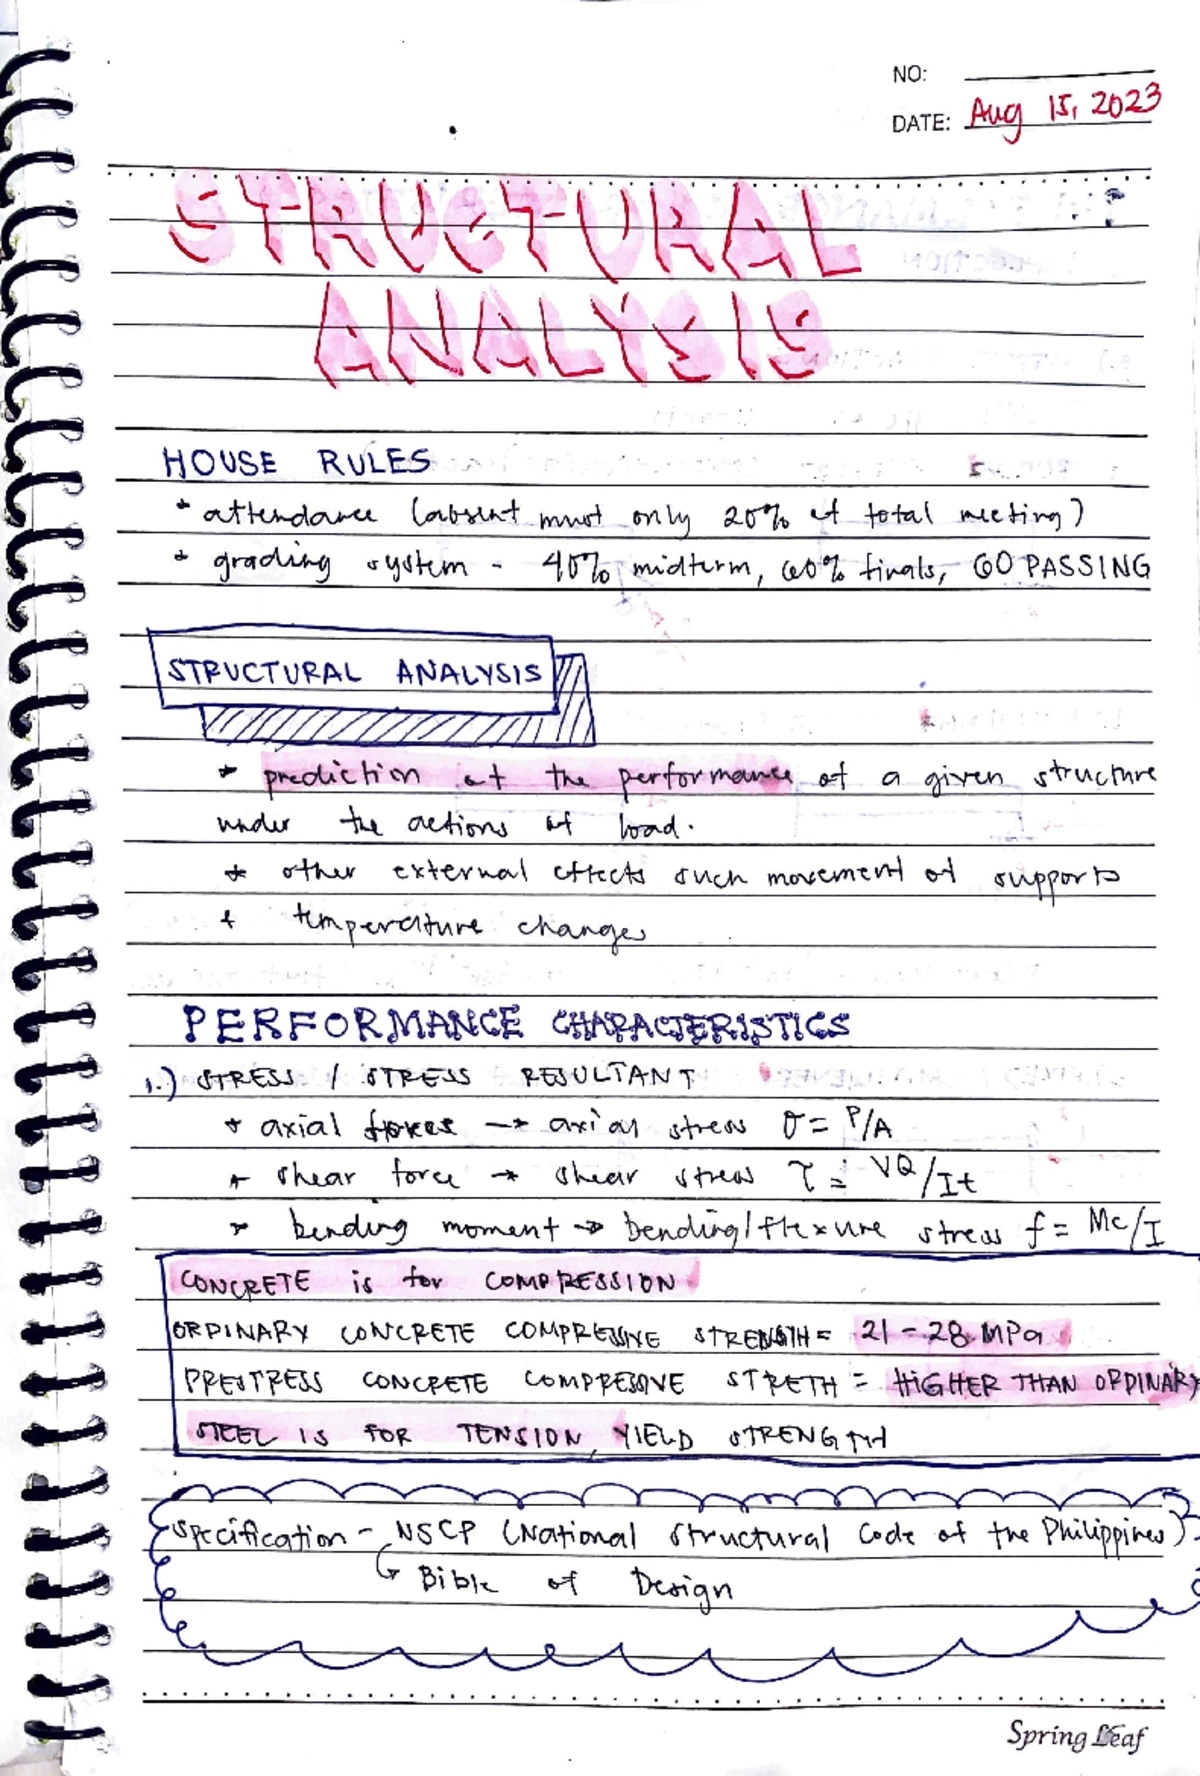 NO:
DATE: Aug 15, 2023
STRUCTURAL
ANALYSIS
HOUSE RULES
* attendance (absent must only 20% of total meeting)
* grading system - 40% midterm, 60% finals, 60 PASSING
STRUCTURAL ANALYSIS
* prediction of the performance of a given structure
under the actions of load.
* other external effects such movement of supports
+ temperature changes
PERFORMANCE CHARACTERISTICS
1.) STRESS / STRESS RESULTANT
* axial forces → axial stress σ = P/A
* shear force → shear stress τ = VQ/It
* bending moment → bending/flexure stress f = Mc/I
CONCRETE is for COMPRESSION
ORDINARY CONCRETE COMPRESSIVE STRENGTH = 21 - 28 MPa
PRESTRESS CONCRETE COMPRESSIVE STRETH = HIGHER THAN ORDINARY
STEEL IS FOR TENSION, YIELD STRENGTH
Specification - NSCP (National Structural Code of the Philippines)
↳ Bible of Design
Spring Leaf